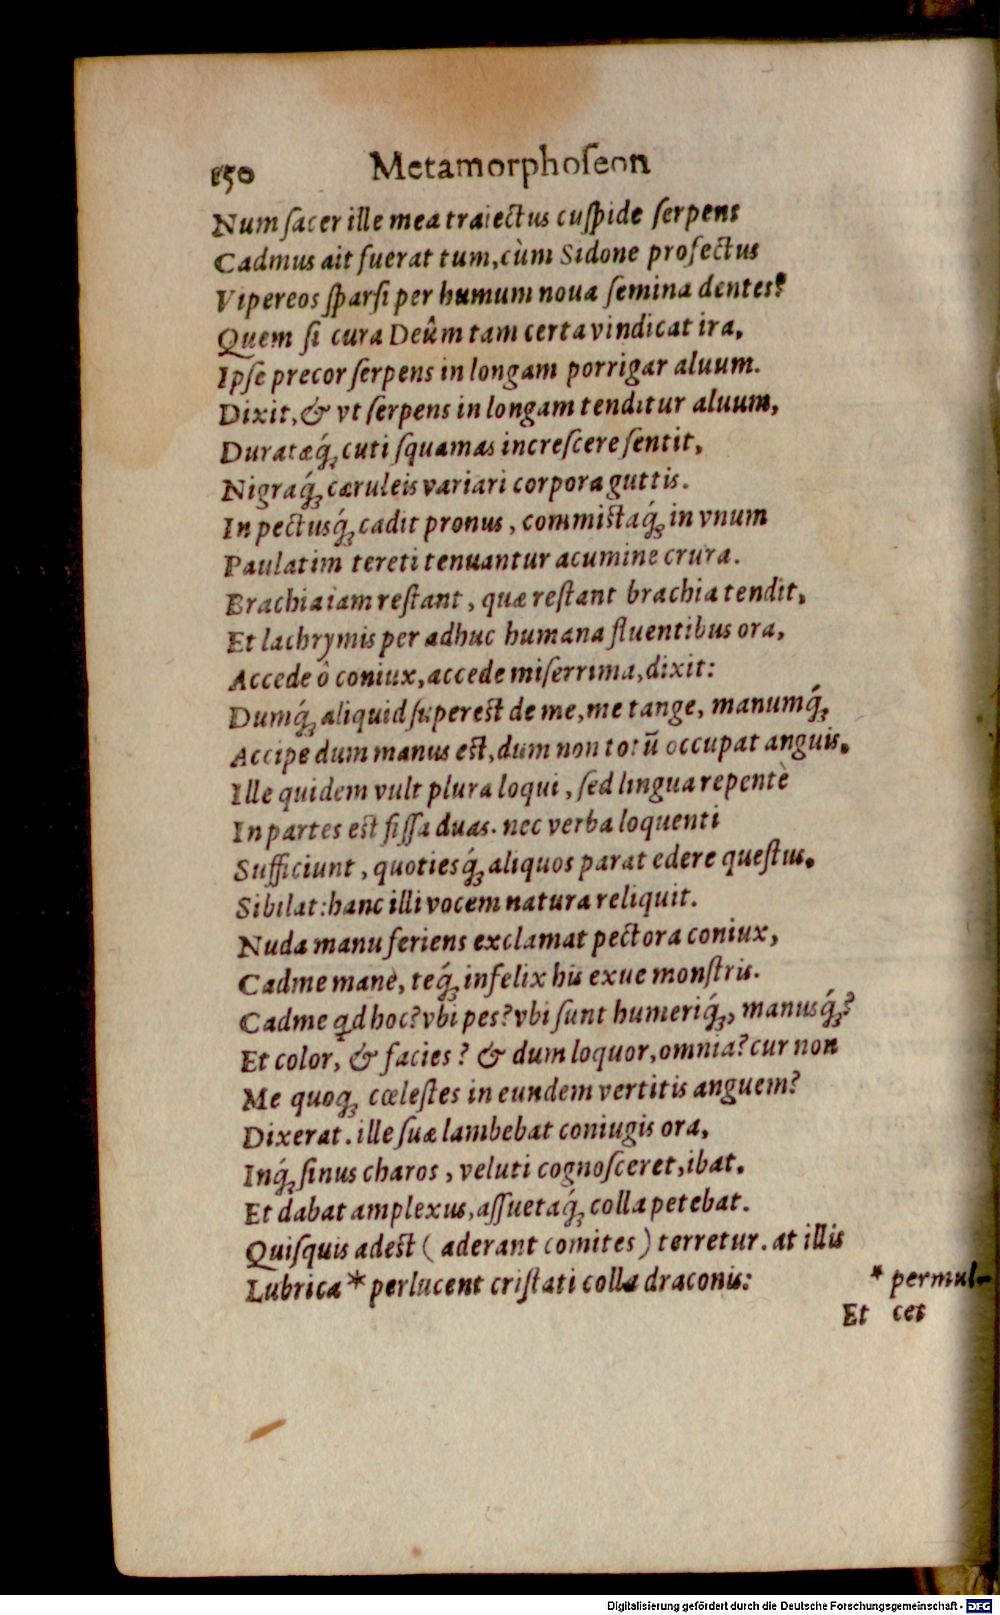 150 Metamorphoſeon
Num ſacer ille mea traiectus cuſpide ſerpens
Cadmus ait fuerat tum, cùm Sidone profectus
Vipereos ſparſi per humum noua ſemina dentes?
Quem ſi cura Deûm tam certa vindicat ira,
Ipſe precor ſerpens in longam porrigar aluum.
Dixit, & vt ſerpens in longam tenditur aluum,
Duratæq́ꝫ cuti ſquamas increſcere ſentit,
Nigraq́ꝫ cæruleis variari corpora guttis.
In pectusq́ꝫ cadit pronus, commiſtaq́ꝫ in vnum
Paulatim tereti tenuantur acumine crura.
Brachia iam reſtant, quæ reſtant brachia tendit,
Et lachrymis per adhuc humana fluentibus ora,
Accede ô coniux, accede miſerrima, dixit:
Dumq́ꝫ aliquid ſupereſt de me, me tange, manumq́ꝫ
Accipe dum manus eſt, dum non totū occupat anguis.
Ille quidem vult plura loqui, ſed lingua repentè
In partes eſt fiſſa duas. nec verba loquenti
Sufficiunt, quotiesq́ꝫ aliquos parat edere queſtus.
Sibilat: hanc illi vocem natura reliquit.
Nuda manu feriens exclamat pectora coniux,
Cadme manè, teq́ꝫ infelix his exue monſtris.
Cadme qd hoc? vbi pes? vbi ſunt humeriq́ꝫ, manusq́ꝫ?
Et color, & facies? & dum loquor, omnia? cur non
Me quoqꝫ cœleſtes in eundem vertitis anguem?
Dixerat. ille ſuæ lambebat coniugis ora,
Inq́ꝫ ſinus charos, veluti cognoſceret, ibat.
Et dabat amplexus, aſſuetaq́ꝫ colla petebat.
Quiſquis adeſt (aderant comites) terretur. at illis
Lubrica * perlucent criſtati colla draconis: * permul-
Et cet
Digitalisierung gefördert durch die Deutsche Forschungsgemeinschaft - DFG